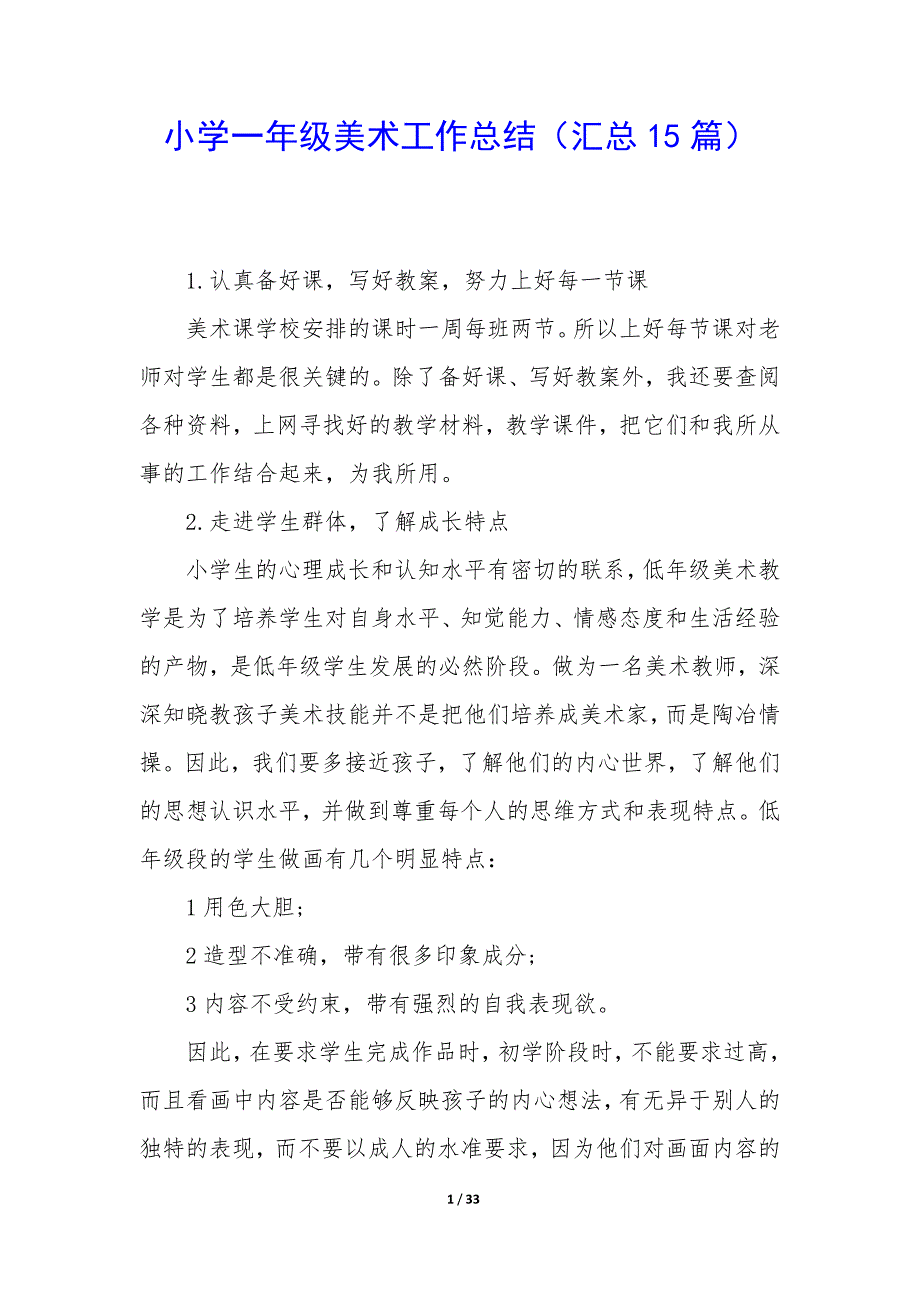 小学一年级美术工作总结（汇总 15 篇）
1.认真备好课，写好教案，努力上好每一节课
美术课学校安排的课时一周每班两节。所以上好每节课对老
师对学生都是很关键的。除了备好课、写好教案外，我还要查阅
各种资料，上网寻找好的教学材料，教学课件，把它们和我所从
事的工作结合起来，为我所用。
2.走进学生群体，了解成长特点
小学生的心理成长和认知水平有密切的联系，低年级美术教
学是为了培养学生对自身水平、知觉能力、情感态度和生活经验
的产物，是低年级学生发展的必然阶段。做为一名美术教师，深
深知晓教孩子美术技能并不是把他们培养成美术家，而是陶冶情
操。因此，我们要多接近孩子，了解他们的内心世界，了解他们
的思想认识水平，并做到尊重每个人的思维方式和表现特点。低
年级段的学生做画有几个明显特点：
1 用色大胆;
2 造型不准确，带有很多印象成分;
3 内容不受约束，带有强烈的自我表现欲。
因此，在要求学生完成作品时，初学阶段时，不能要求过高，
而且看画中内容是否能够反映孩子的内心想法，有无异于别人的
独特的表现，而不要以成人的水准要求，因为他们对画面内容的
1 / 33